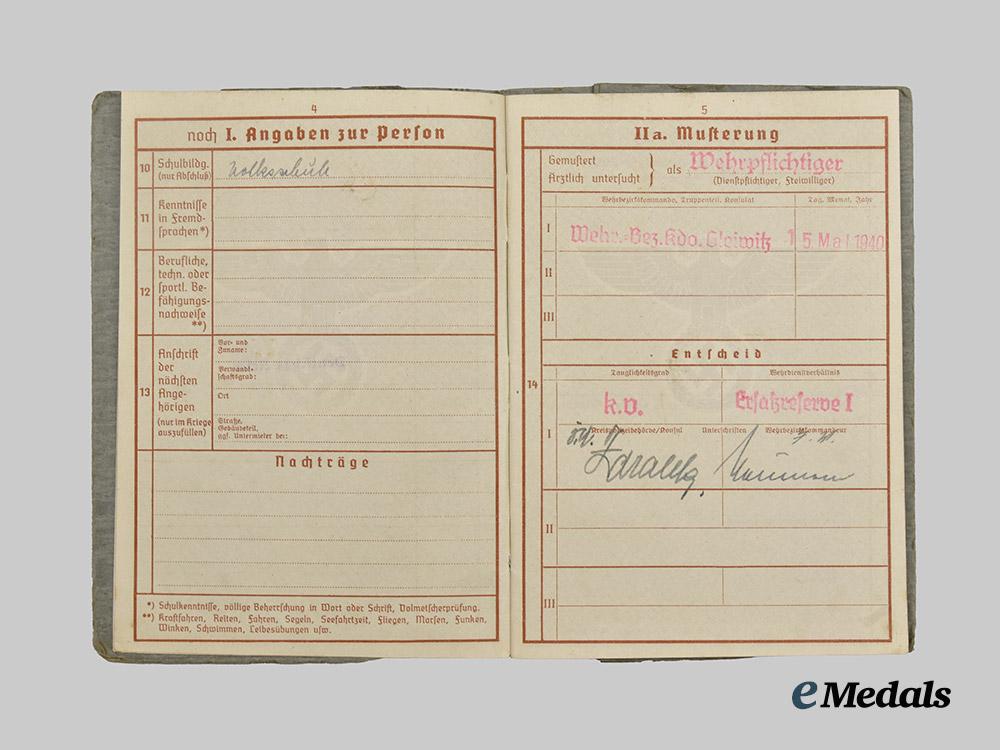 4
noch I. Angaben zur Person
10 Schulbildg. (nur Abschluß)
Volksschule
11 Kenntnisse in Fremd-
sprachen*)
12 Berufliche,
techn. oder
sportl. Be-
fähigungs-
nachweise
**)
13 Anschrift
der
nächsten
Ange-
hörigen
(nur im Kriege
auszufüllen)
Vor- und
Zuname:
Verwandt-
schaftsgrad:
Ort
Straße,
Gebäudeteil,
ggf. Untermieter bei:
Nachträge
*) Schulkenntnisse, völlige Beherrschung in Wort oder Schrift, Dolmetscherprüfung.
**) Kraftfahren, Reiten, Fahren, Segeln, Seefahrtzeit, Fliegen, Morsen, Funken,
Winken, Schwimmen, Leibesübungen usw.
5
II a. Musterung
Gemustert
Ärztlich untersucht } als Wehrpflichtiger
(Dienstpflichtiger, Freiwilliger)
Wehrbezirkskommando, Truppenteil, Konsulat
Tag, Monat, Jahr
I Wehr.-Bez.Kdo. Gleiwitz 15. Mai 1940
II
III
Entscheid
14
Tauglichkeitsgrad
Wehrdienstverhältnis
k.v.
Ersatzreserve I
I
Kreispolizeibehörde/Konsul Unterschriften Wehrbezirkskommandeur
II
III
eMedals